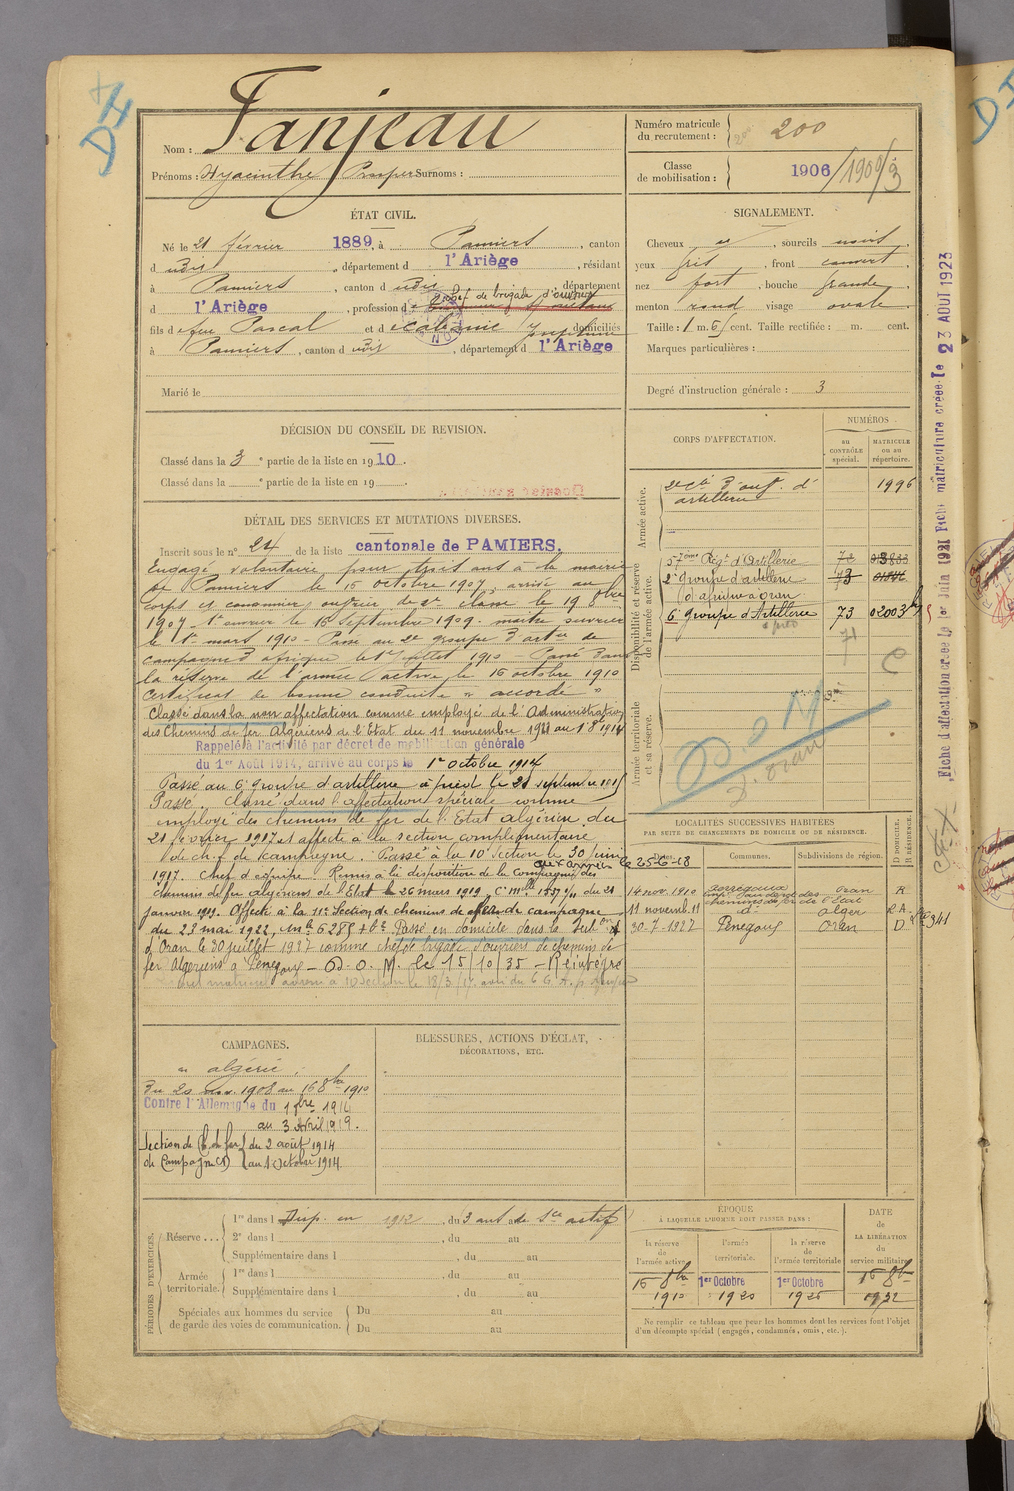 DI
Nom : Fanjeau
Prénoms : Hyacinthe Prosper Surnoms :
Numéro matricule du recrutement : 200
Classe de mobilisation : 1906 / 1909/3
ÉTAT CIVIL.
Né le 21 février 1889, à Pamiers, canton
d udit, département d l'Ariège, résidant
à Pamiers, canton d udit département
d l'Ariège, profession d e chef de brigade d'ouvriers
fils d e feu Pascal et d e Joséphine domiciliés
à Pamiers, canton d udit, département d l'Ariège
Marié le
SIGNALEMENT.
Cheveux, sourcils noirs.
yeux gris, front couvert
nez fort, bouche grande
menton rond visage ovale
Taille : 1 m. cent. Taille rectifiée : m. cent.
Marques particulières :
Degré d'instruction générale : 3
DÉCISION DU CONSEIL DE REVISION.
Classé dans la 3e partie de la liste en 1910.
Classé dans la e partie de la liste en 19 .
DÉTAIL DES SERVICES ET MUTATIONS DIVERSES.
Inscrit sous le n° 24 de la liste cantonale de PAMIERS.
Engagé volontaire pour trois ans à la mairie
de Pamiers le 15 octobre 1907, arrivé au
corps et ouvrier de 2e classe le 19 8bre
1907. 1er ouvrier le 16 septembre 1909. maitre ouvrier
le 1er mars 1910 - Passé au 2e groupe d'art ie de
campagne d'afrique le 1er juillet 1910 - Passé dans
la réserve de l'armée active le 15 octobre 1910
Certificat de bonne conduite " accordé "
Classé dans la non affectation comme employé de l'Administration
des Chemins de fer Algériens de l'Etat du 11 novembre 1911 au 1 8bre 1914
Rappelé à l'activité par décret de mobilisation générale
du 1er Août 1914, arrivé au corps le 1er octobre 1914
Passé au 6e groupe d'artillerie à pied le 21 septembre 1915
Passé classé dans l'affectation spéciale comme
employé des chemins de fer de l'Etat algérien du
21 février 1917 et affecté à la section complémentaire
de ch. f. de campagne. Passé à la 10e Section le 30 juin
1917. Chef d'équipe. Remis à la disposition de la Compagnie des
chemins de fer algériens de l'Etat le 26 mars 1919. 1557 du 21
janvier 1919. Affecté à la 11e Section de chemins de fer de campagne
du 23 mai 1922, Passé en domicile dans la Sub on
d'Oran le 30 juillet 1927 comme chef de brigade d'ouvriers de chemins de
fer Algériens à Pérégoux - D. O. M. le 15/10/35 - Réintégré
CORPS D'AFFECTATION.
NUMÉROS
au CONTRÔLE spécial.
MATRICULE ou au répertoire.
Armée active.
artillerie 1996
Disponibilité et réserve de l'armée active.
57ème Régt d'Artillerie 72
2e Groupe d'artillerie 73
d'afrique à oran
6 Groupe d'Artillerie 73 02003 bis
à pied
71
C
Armée territoriale et sa réserve.
D.O.M
d. oran
LOCALITÉS SUCCESSIVES HABITÉES
PAR SUITE DE CHANGEMENTS DE DOMICILE OU DE RÉSIDENCE.
Dates. Communes. Subdivisions de région. D DOMICILE. R RÉSIDENCE.
14 nov. 1910 Oran R
chemins de fer de l'Etat
11 novemb. 11 d° alger R A.
30-7-1927 Pérégoux Oran D
CAMPAGNES.
en algérie :
Du 20 nov. 1908 au 15 8bre 1910
Contre l'Allemagne du 1 8bre 1914
au 3 Avril 1919.
Section de Ch. de fer du 2 août 1914
de Campagne au 1 Octobre 1914
BLESSURES, ACTIONS D'ÉCLAT,
DÉCORATIONS, ETC.
PÉRIODES D'EXERCICES.
Réserve...
1re dans l Disp. en 1912, du 3 ans de sce actif
2e dans l , du au
Supplémentaire dans l , du au
Armée territoriale.
1re dans l , du au
Supplémentaire dans l , du au
Spéciales aux hommes du service de garde des voies de communication.
Du au
Du au
ÉPOQUE
À LAQUELLE L'HOMME DOIT PASSER DANS :
la réserve de l'armée active
l'armée territoriale.
la réserve de l'armée territoriale
DATE de LA LIBÉRATION du service militaire
15 8bre 1910
1er Octobre 1920
1er Octobre 1926
15 8bre 1932
Ne remplir ce tableau que pour les hommes dont les services font l'objet
d'un décompte spécial (engagés, condamnés, omis, etc.).
Fiche d'affectation créée le 1er Juin 1921 Fiche matriculaire créée le 23 AOUT 1923